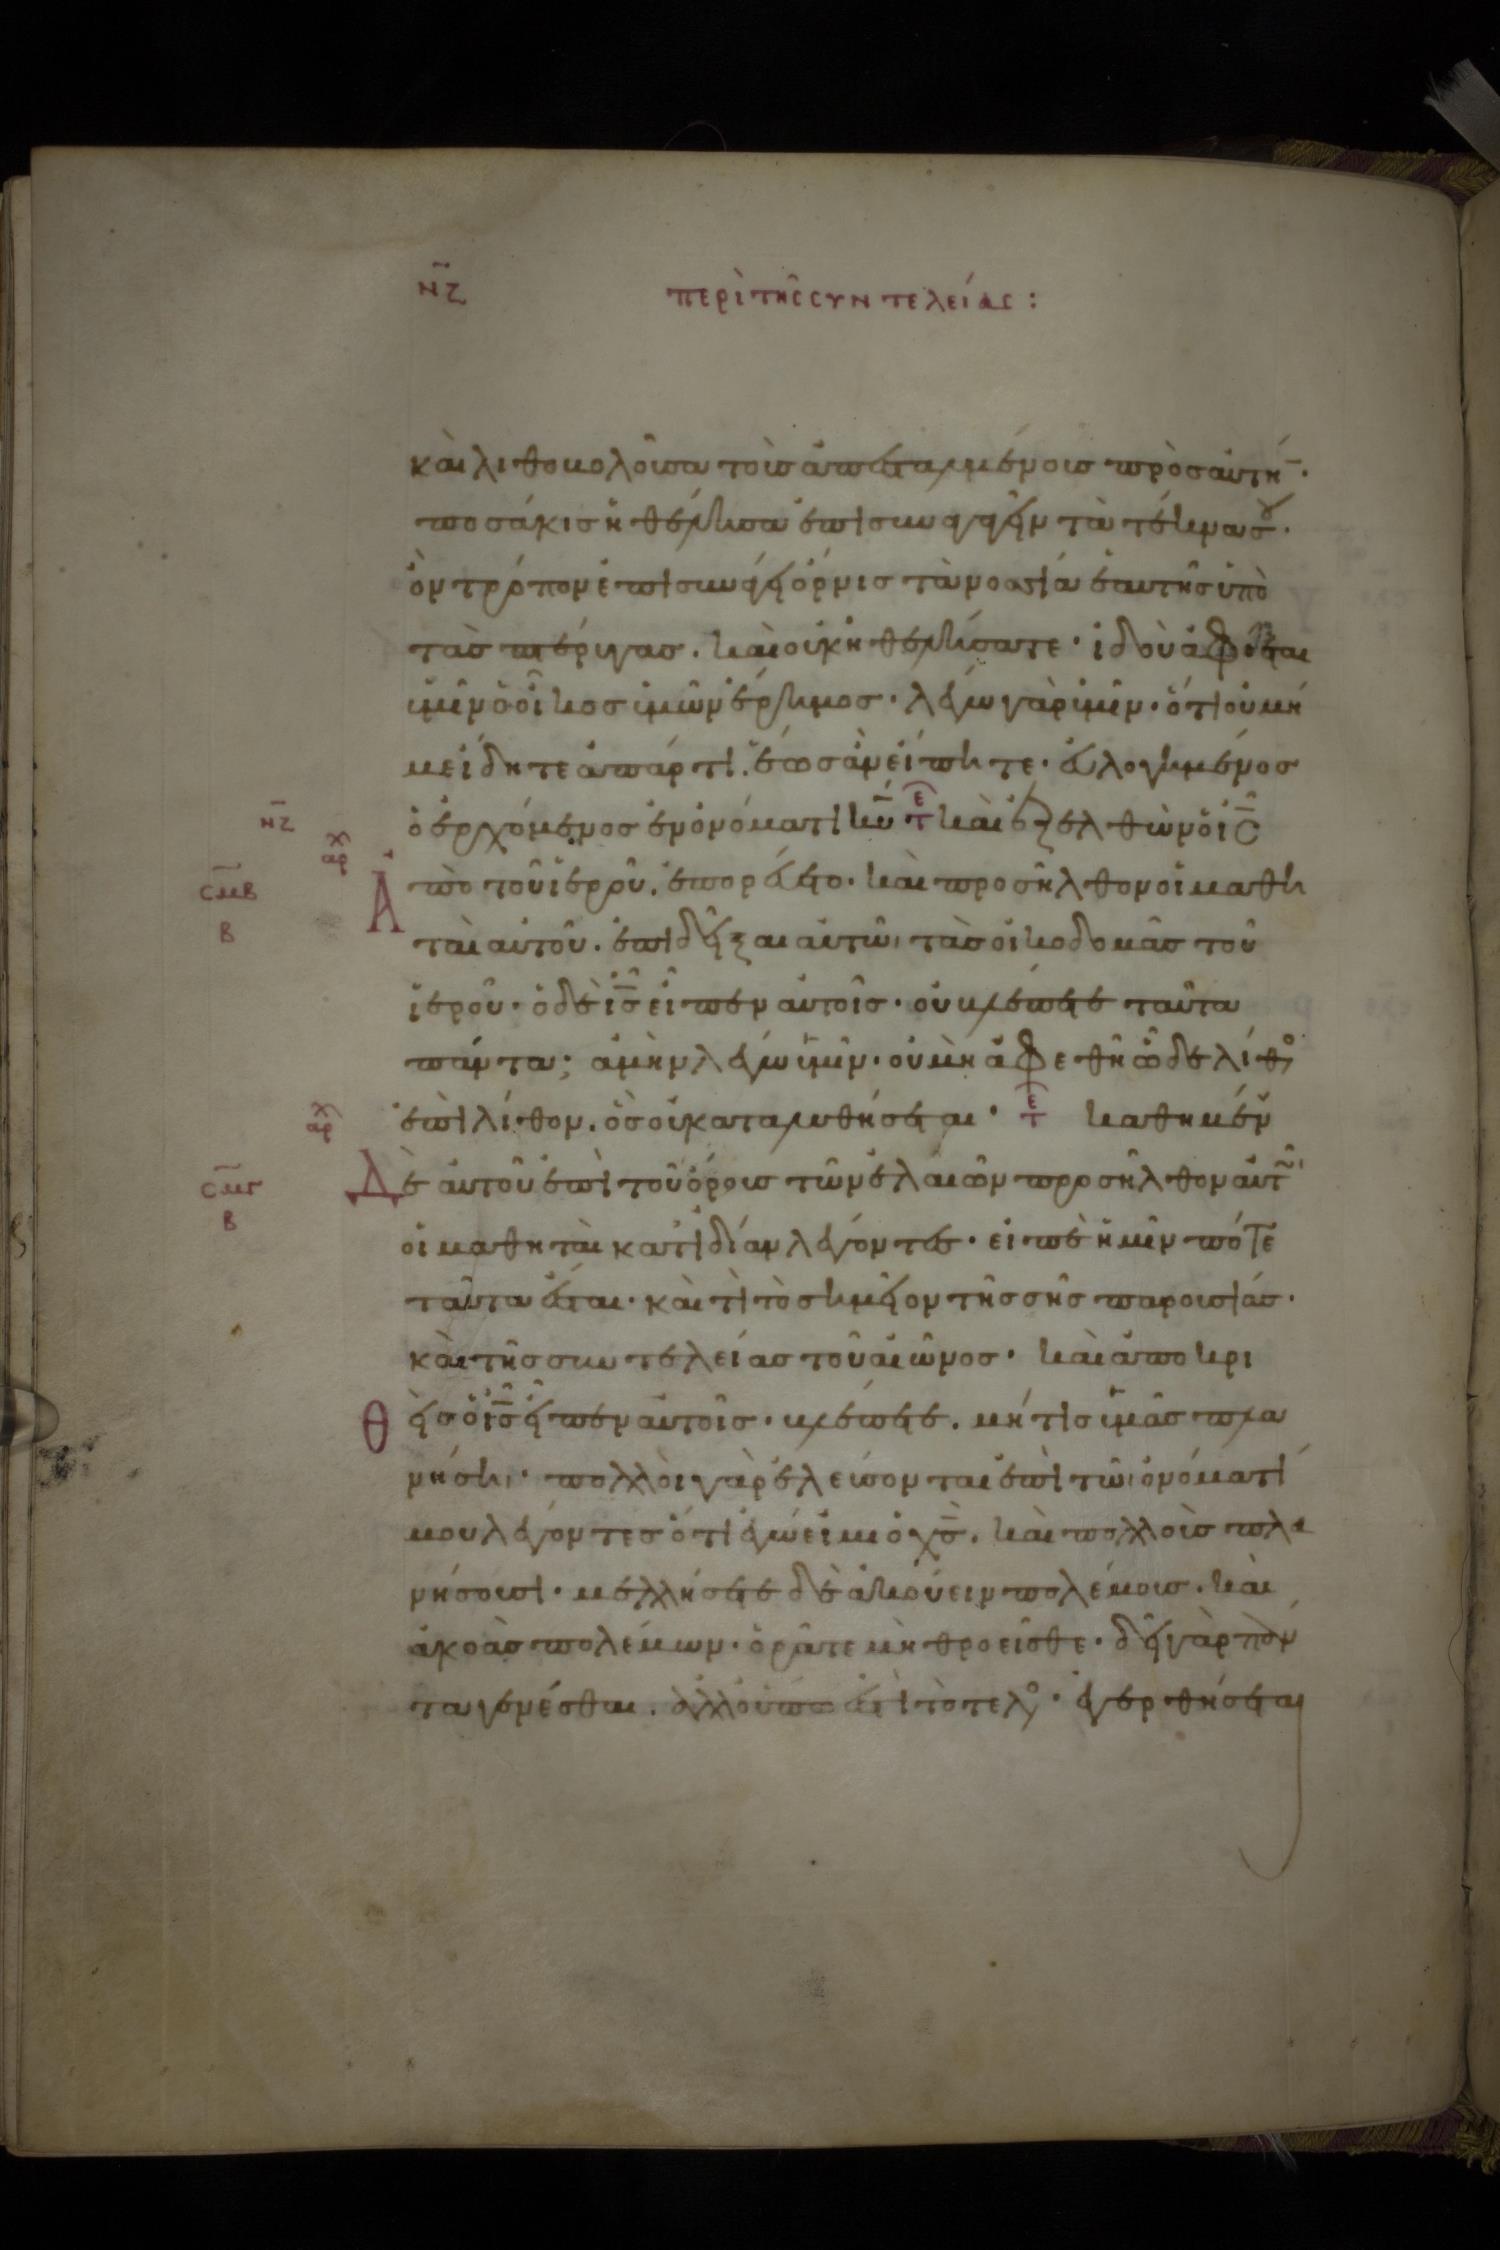 νζ περὶ τῆς συντελείας:
καὶ λιθοβολοῦσα τοὺς ἀπεσταλμένους πρὸς αὐτήν·
ποσάκις ἠθέλησα ἐπισυναγαγεῖν τὰ τέκνα σου·
ὃν τρόπον ἐπισυνάγει ὄρνις τὰ νοσσία ἑαυτῆς ὑπὸ
τὰς πτέρυγας. καὶ οὐκ ἠθελήσατε· ἰδοὺ ἀφίεται
ὑμῖν ὁ οἶκος ὑμῶν ἔρημος· λέγω γὰρ ὑμῖν· ὅτι οὐ μή
με ἴδητε ἀπάρτι. ἕως ἂν εἴπητε· εὐλογημένος
νζ ὁ ἐρχόμενος ἐν ὀνόματι κυ τε καὶ ἐξελθὼν ὁ ις
αρχ σμβ β Ἀπὸ τοῦ ἱεροῦ. ἐπορεύετο· καὶ προσῆλθον οἱ μαθη
ταὶ αὐτοῦ. ἐπιδεῖξαι αὐτῶ τὰς οἰκοδομὰς τοῦ
ἱεροῦ· ὁ δὲ ις εἶπεν αὐτοῖς· οὐ βλέπετε ταῦτα
πάντα; ἀμὴν λέγω ὑμῖν· οὐ μὴ ἀφεθῆ ὧδε λίθος
ἐπὶ λίθον. ὃς οὐ καταλυθήσεται· τε καθημένου
αρχ σμγ β Δὲ αὐτοῦ ἐπὶ τοῦ ὄρους τῶν ἐλαιῶν προσῆλθον αὐτῶ
οἱ μαθηταὶ κατιδίαν λέγοντες· εἰπὲ ἡμῖν πότε
ταῦτα ἔσται· καὶ τί τὸ σημεῖον τῆς σῆς παρουσίας·
καὶ τῆς συντελείας τοῦ αἰῶνος· καὶ ἀποκρι
Θεὶς ὁ ις εἶπεν αὐτοῖς· βλέπετε. μή τις ὑμᾶς πλα
νήση· πολλοὶ γὰρ ἐλεύσονται ἐπὶ τῶ ὀνόματί
μου λέγοντες ὅτι ἐγώ εἰμι ὁ χς. καὶ πολλοὺς πλα
νήσουσι· μελλήσετε δὲ ἀκούειν πολέμους. καὶ
ἀκοὰς πολέμων· ὁρᾶτε μὴ θροεῖσθε· δεῖ γὰρ πάν
τα γενέσθαι. ἀλλ οὔπω ἐστὶ τὸ τέλος· ἐγερθήσεται